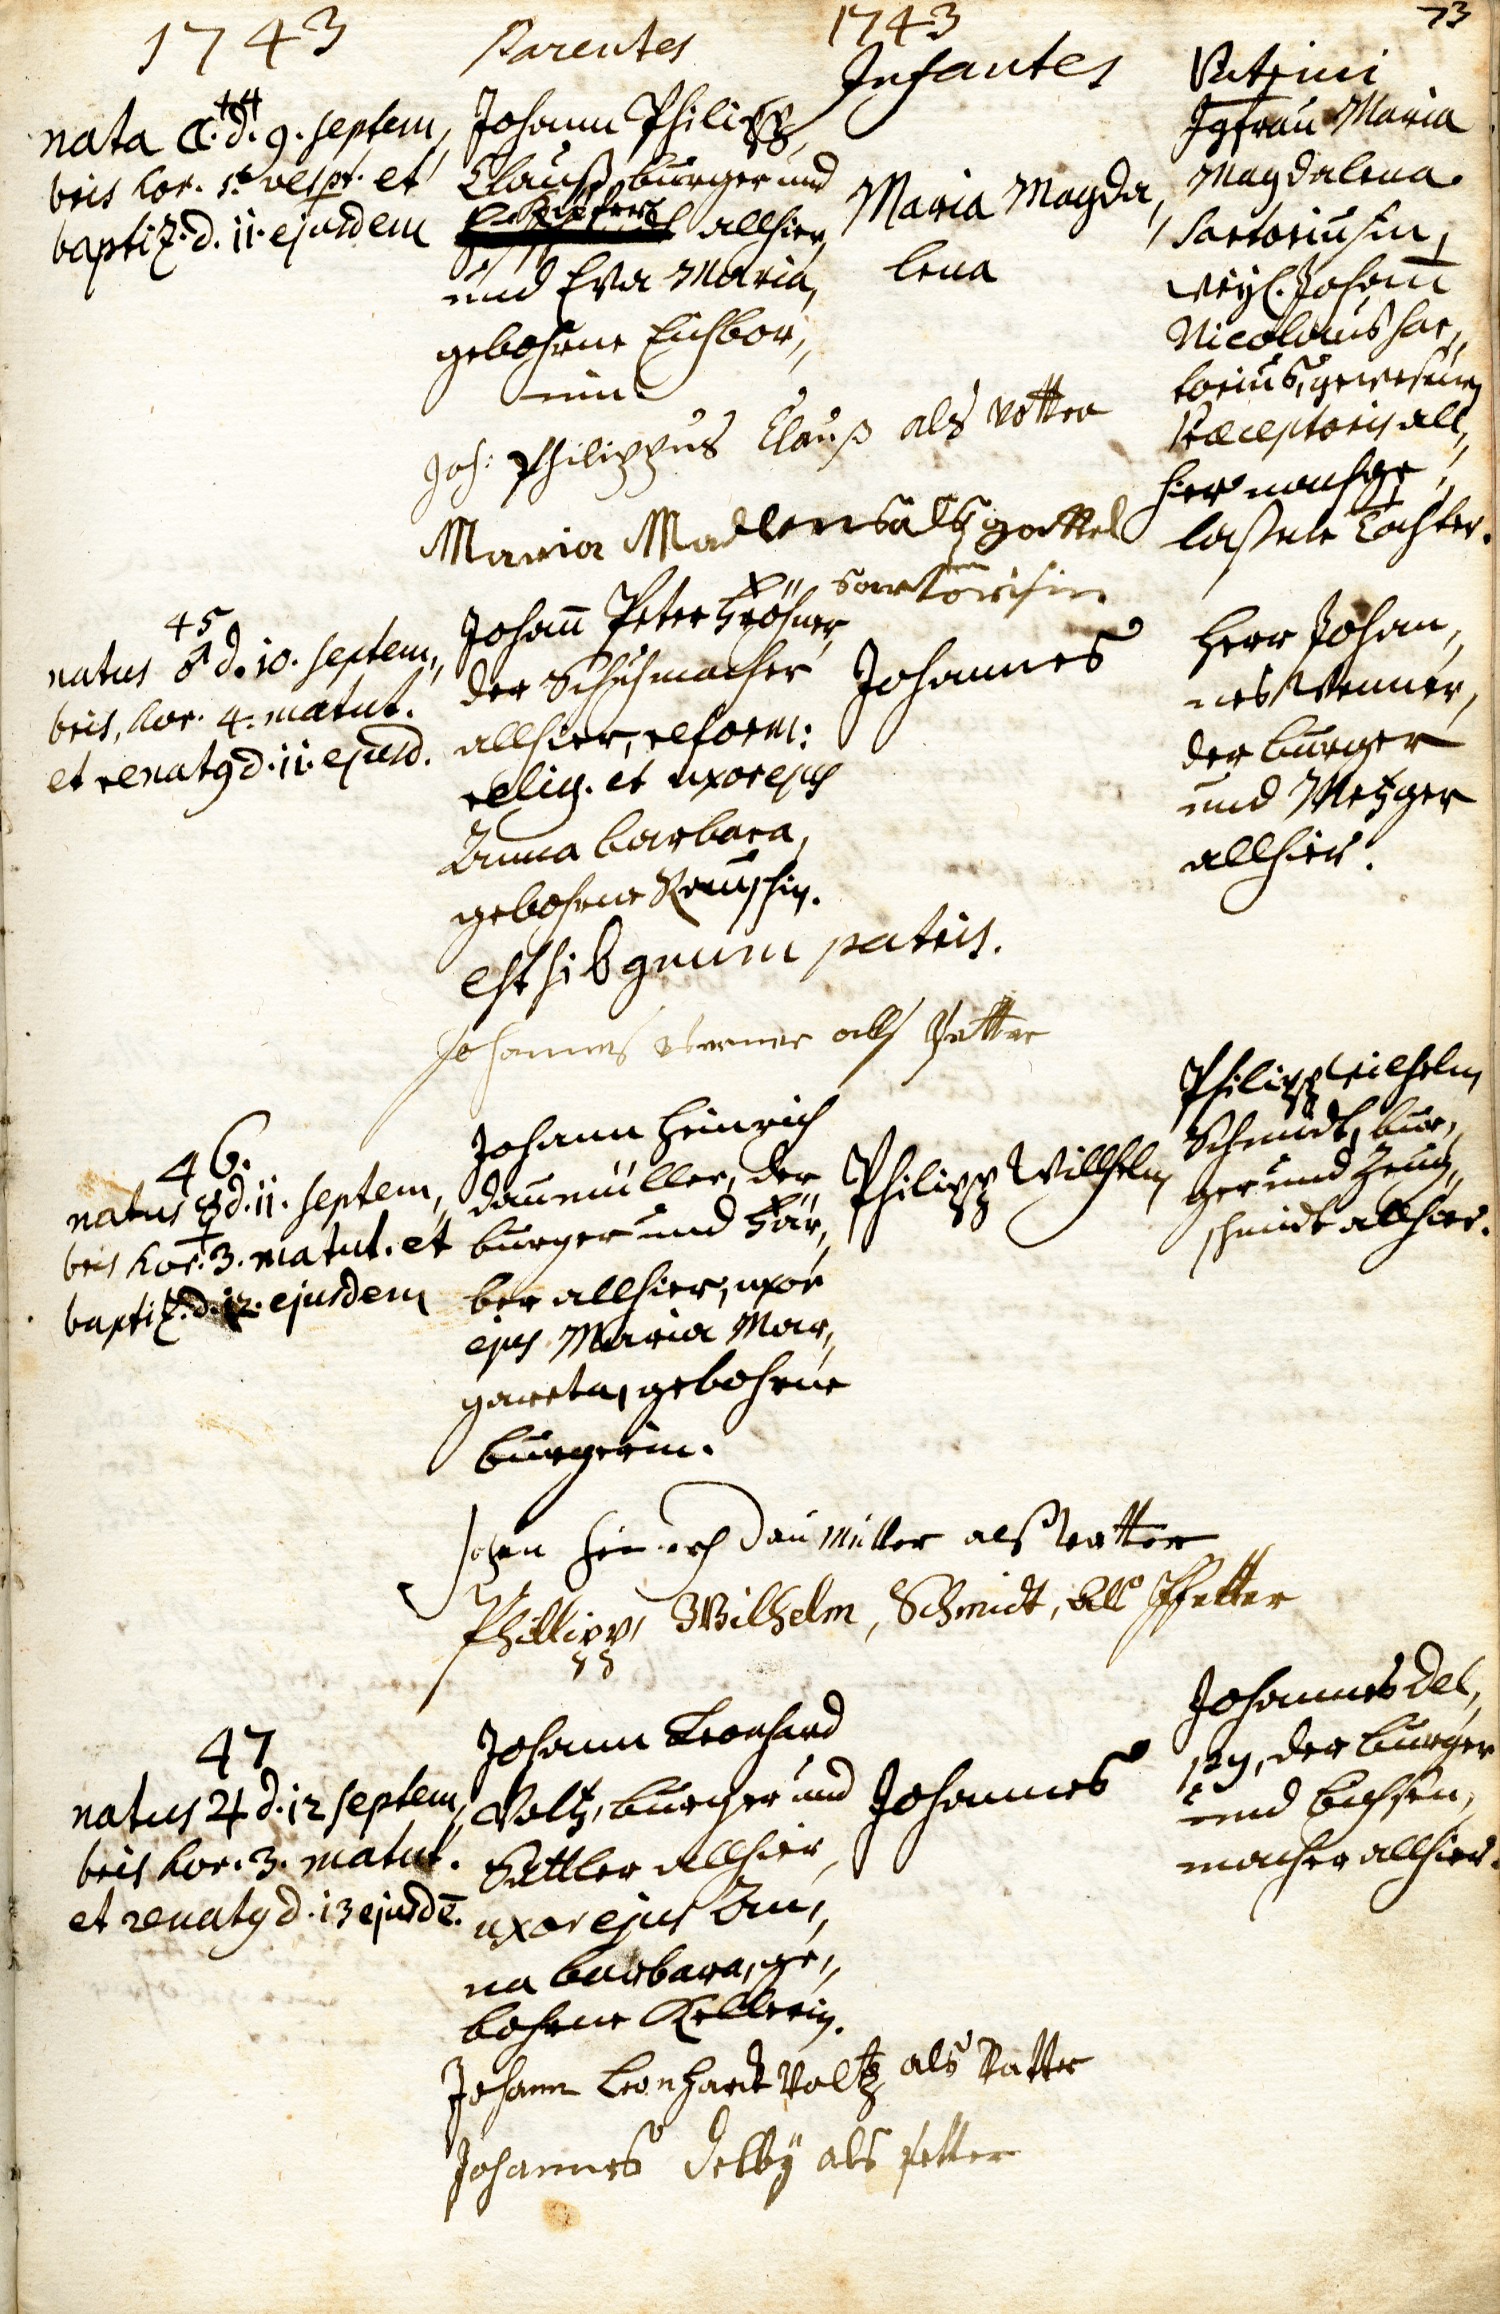 1743
Parentes
1743
Infantes
Patrini
73
44
nata ☾ d. 9. Septem,
bris hor. 5t vespt. et
baptiz. d. 11. ejusdem
Johann Philipp
Clauß, burger und
Küfer allhier,
und Eva Maria,
gebohrne Eichbor,,
nin.
Maria Magda,
lena
Jgfrau Maria
Magdalena
Sartoriusin,
weyl. Johann
Nicolaus Sar,,
torius, gewesenen
Præceptoris all,
hier nachge,,
laßene Tochter.
Joh: Philippus Clauß als Vatter
Maria Madlen als gottel
Sartorisin
45
natus ♂ d. 10. Septem,,
bris, hor. 4. matut.
et renatq d. 11. ejusd.
Johann Peter
der Schuhmacher
allhier, reform:
relig. et uxor ejus
Anna barbara,
gebohrne Reuschin.
est signum patris.
Johannes
Herr Johan,,
nes Wenner,
der burger
und Metzger
allhier.
Johannes Wenner alß Petter
46.
natus ☿ d. 11. Septem,,
bris hor. 3. matut. et
baptiz. d. 12. ejusdem
Johann Heinrich
Daumüller, der
burger und Fär,,
ber allhier, uxor
ejus Maria Mar,,
gareta, gebohrne
burgerin.
Philipp Willhelm
Philipp Wilhelm
Schmidt, bur,,
ger und Zeug,,
schmidt allhier.
Johan Heinrich Daumüller alß Vatter
Phillipp Wilhelm, Schmidt, als Pfetter
47
natus ♃ d. 12 Septem,,
bris hor. 3. matut.
et renatq d. 13 ejusdē.
Johann Leonhard
Voltz, burger und
Sattler allhier,
uxor ejus An,,
na barbara, ge,,
bohrne Kellerin.
Johannes
Johannes Del,,
py, der burger
und buchsen,,
macher allhier.
Johann Leonhardt Voltz als Vatter
Johannes Delbÿ als petter